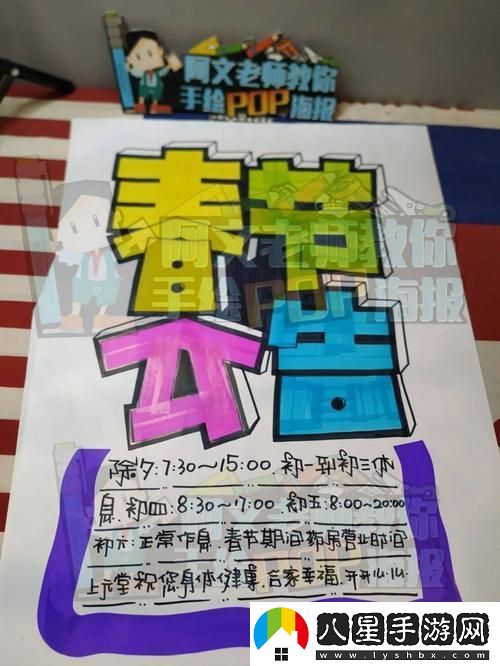 阿文老师教你
手绘POP海报
春节
公告
阿文老师教你
手绘POP海报
除夕7:30～15:00.初一到初三休
息.初四:8:30～17:00.初五:8:00～20:00
初六:正常作息.春节期间药房营业时间
上元堂祝您身体健康.合家幸福.开开心心.
八星手游网
www.lyshbx.com